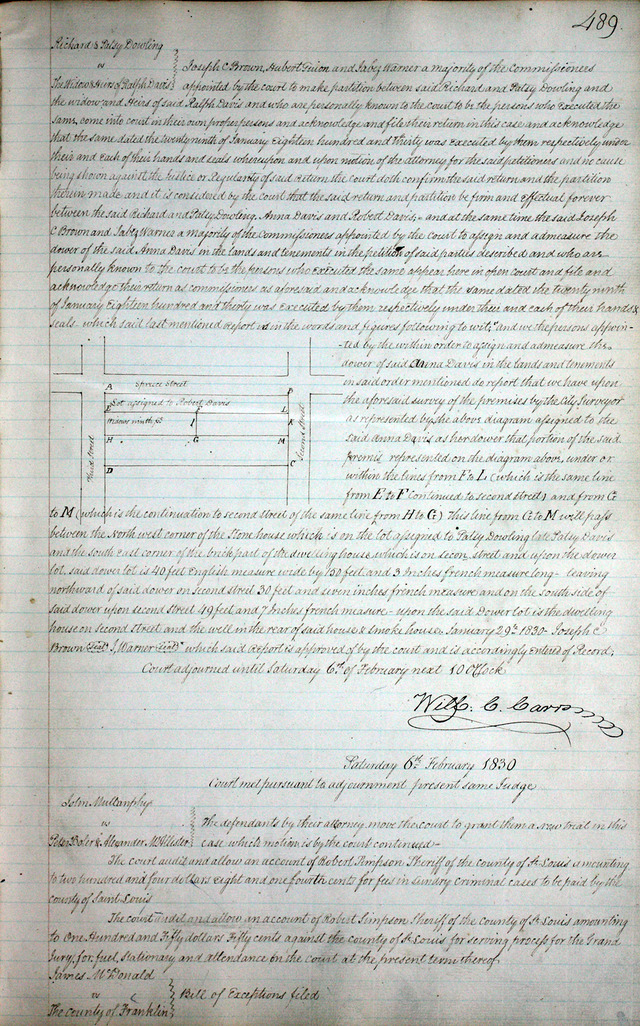 489.
Richard & Patsy Dowling
vs
The Widow & Heirs of Ralph Davis
Joseph C Brown, Hubert Guion and Jabez Warner a majority of the Commissioners
appointed by the court to make partition between said Richard and Patsy Dowling and
the widow and Heirs of said Ralph Davis and who are personally known to the court to be the persons who executed the
same, come into court in their own proper persons and acknowledge and file their return in this case and acknowledge
that the same dated the twenty ninth of January Eighteen hundred and thirty was executed by them respectively under
their and each of their hands and seals whereupon and upon motion of the attorney for the said petitioners and no cause
being shown against the Justice or Regularity of said return the court doth confirm the said return and the partition
therein made and it is considered by the court that the said return and partition be firm and effectual forever
between the said Richard and Patsy Dowling, Anna Davis and Robert Davis - and at the same time the said Joseph
C Brown and Jabez Warner a majority of the Commissioners appointed by the court to assign and admeasure the
dower of the said Anna Davis in the lands and tenements in the petition of said parties described and who are
personally known to the court to be the persons who executed the same appear here in open court and file and
acknowledge their return as commissioners as aforesaid and acknowledge that the same dated the twenty ninth
of January Eighteen hundred and thirty was executed by them respectively under their and each of their hands &
seals which said last mentioned Report is in the words and figures following to wit; and we the persons appoin-
-ted by the within order to assign and admeasure the
dower of said Anna Davis in the lands and tenements
in said order mentioned do report that we have upon
the aforesaid survey of the premises by the City Surveyor
as represented by the above diagram assigned to the
said Anna Davis as her dower that portion of the said
premis represented on the diagram above, under or
within the lines from F to L (which is the same line
from E to F continued to second street) and from G
A Spruce Street B
Lot assigned to Robert Davis
E F L
Widows ninth pt I K
H G M
D C
Third Street
Second Street
to M (which is the continuation to second street of the same line from H to G) This line from G to M will pass
between the North west corner of the Stone house which is on the lot assigned to Patsy Dowling late Patsy Davis
and the south east corner of the brick part of the dwelling house which is on secon street and upon the dower
lot, said dower lot is 40 feet English measure wide by 150 feet and 3 Inches french measure long - leaving
northward of said dower on second street 30 feet and seven inches french measure and on the south side of
said dower upon second street 49 feet and 7 Inches french measure - upon the said Dower lot is the dwelling
house on second street and the well in the rear of said house & smoke house, January 29th 1830 - Joseph C
Brown (seal) J. Warner (seal)" which said Report is approved by the court and is accordingly entered of Record;
Court adjourned until Saturday 6th of February next 10 OClock
Will. C. Carr
Saturday 6th February 1830
Court met pursuant to adjournment present same Judge
John Mullanphy
vs
Peter Boler & Alexander McAllister
The defendants by their attorney move the court to grant them a new treal in this
case which motion is by the court continued -
The court audit and allow an account of Robert Simpson Sheriff of the county of St Louis amounting
to two hundred and four dollars eight and one fourth cents for fees in sundry criminal cases to be paid by the
county of Saint Louis
The court audit and allow an account of Robert Simpson Sheriff of the county of St Louis amounting
to One Hundred and Fifty dollars Fifty cents against the county of St Louis for serving process for the Grand
Jury, for fuel, Stationary and attendance on the court at the present term thereof
James McDonald
vs
The county of Franklin
Bill of Exceptions filed